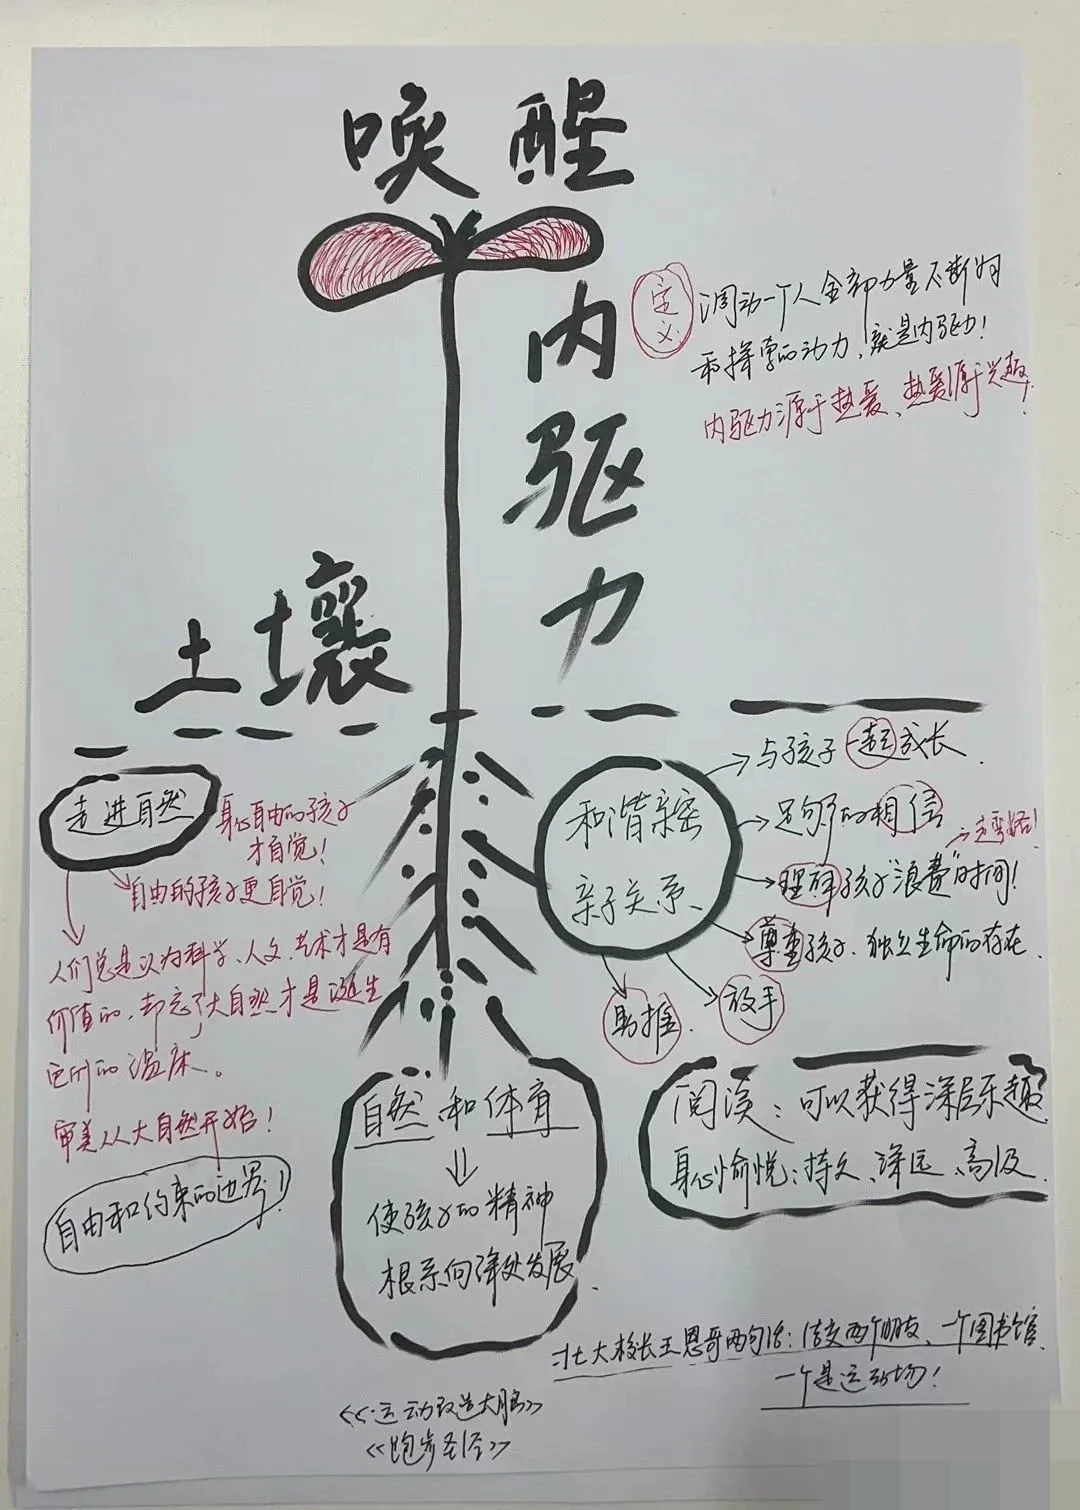 唤醒
内驱力
定义
调动一个人全部力量不断向
和探索的动力,就是内驱力!
内驱力源于热爱、热爱源于兴趣!
土壤
走进自然
身心自由的孩子
才自觉!
自由的孩子更自觉!
人们总是认为科学、人文、艺术才是有
价值的,却忘了大自然才是诞生
它们的温床。
审美从大自然开始!
自由和约束的边界!
和谐亲密
亲子关系、
与孩子一起成长.
足够的相信
理解孩子"浪费"时间!
尊重孩子.独立生命的存在.
助推.
放手
自然和体育
使孩子的精神
根系向深处发展.
阅读:可以获得深层乐趣
身心愉悦:持久、深远、高级.
北大校长王恩哥两句话:结交两个朋友、一个图书馆.
一个是运动场!
《运动改造大脑》
《跑步圣经》